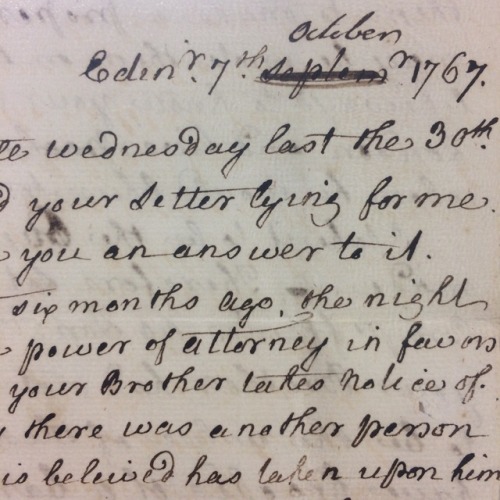 October
Edinr. 7th septemr 1767.
wednesday last the 30th.
your Letter lying for me.
you an answer to it.
six months ago, the night
power of attorney in favors
your Brother takes notice of.
there was another person
is beleiv'd has taken upon him